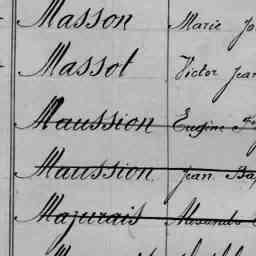 Masson Marie Jo
Massot Victor Jean
Maussion Eugène
Maussion Jean Bap
Majurais